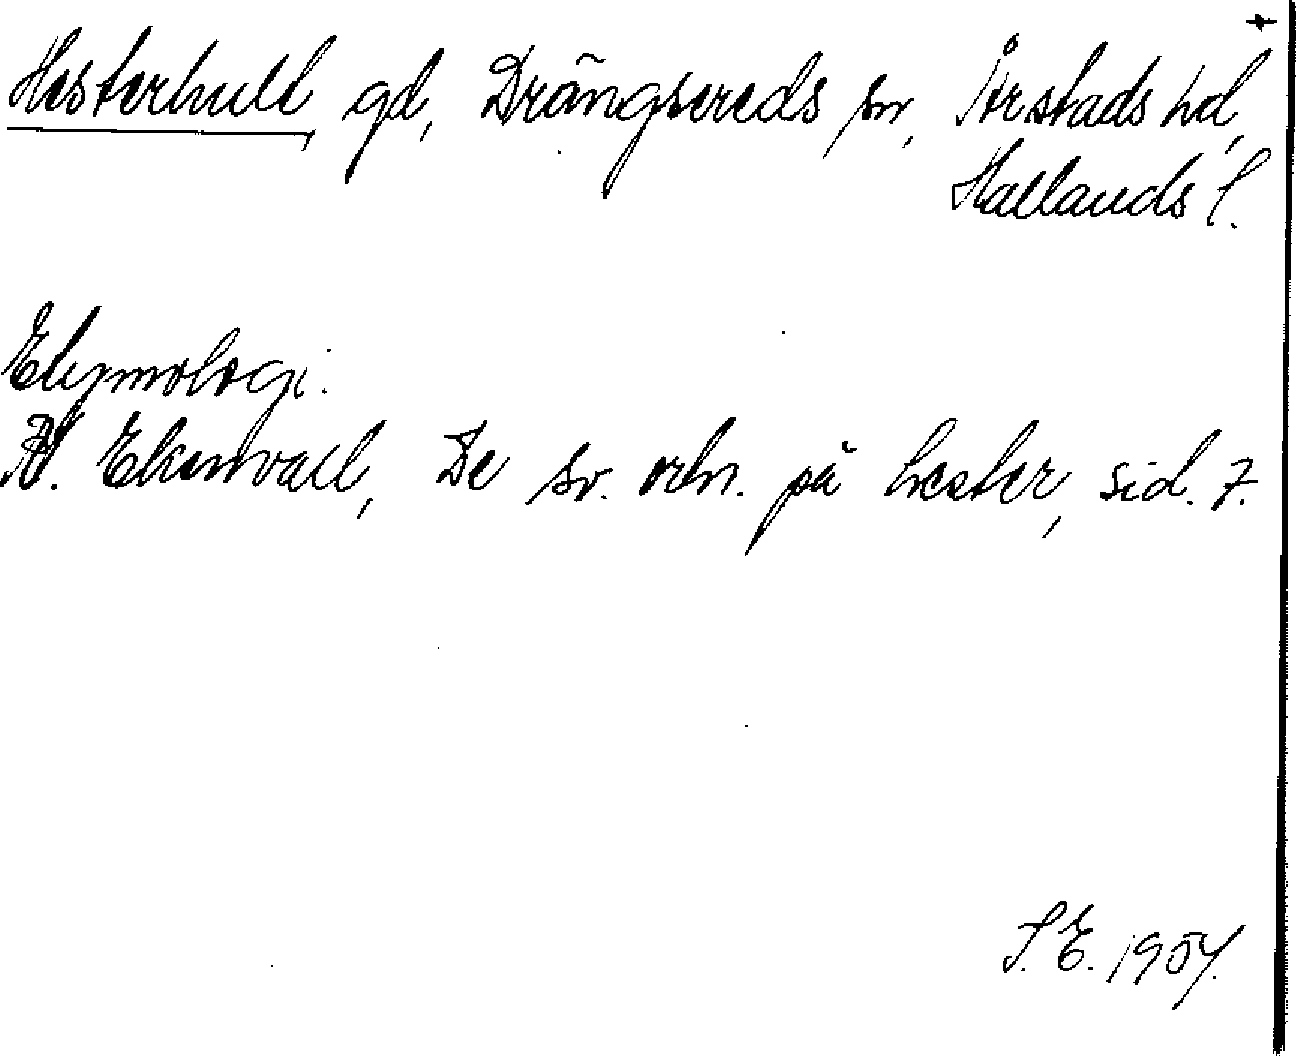 +
Hesterhult, gd, Drängsereds sn, Årstads hd,
Hallands l.
Etymologi:
Ekenvall, De sv. ortn. på hester, sid. 7.
S.E. 1954.